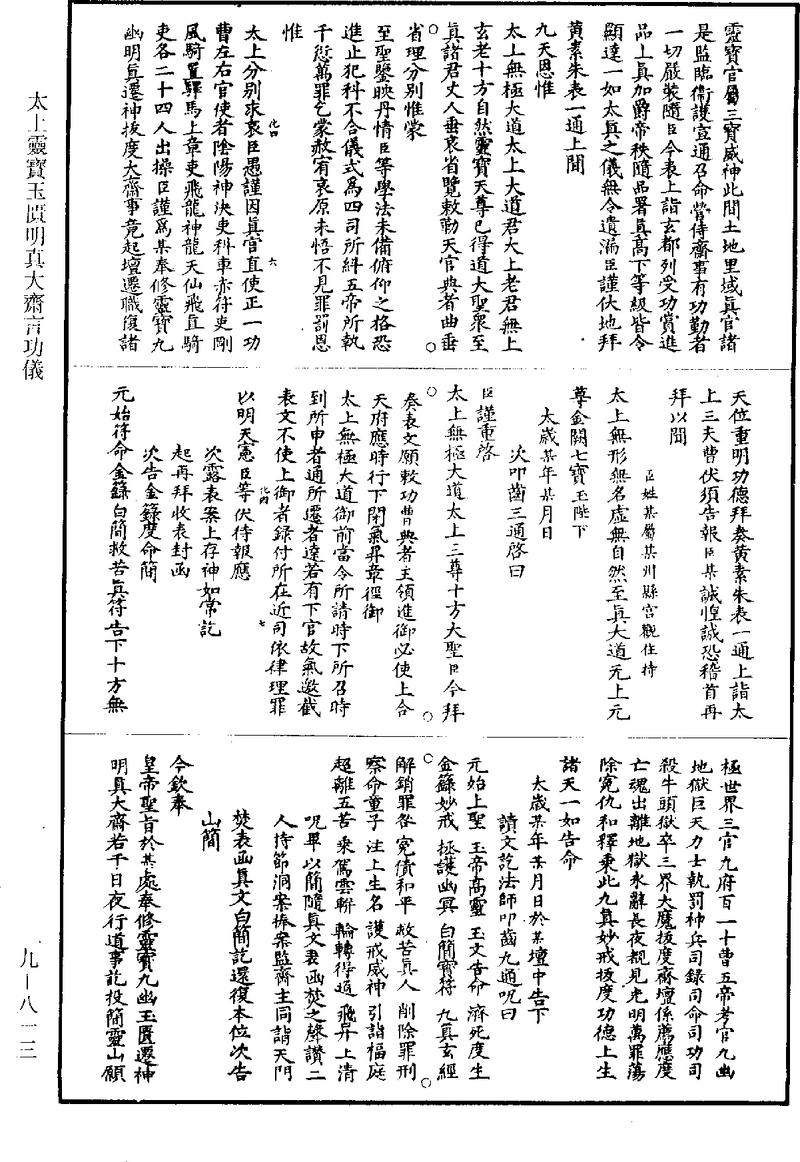 靈寶官屬三寶威神此間土地里域眞官諸
是監臨衞護宣通召命營侍齋事有功勤者
一切嚴裝隨臣今表上詣玄都列受功賞進
品上眞加爵帝秩隨品署眞高下等級皆令
顯達一如太眞之儀無令遺漏臣謹伏地拜
黃素朱表一通上聞
九天恩惟
太上無極大道太上大道君太上老君無上
玄老十方自然靈寶天尊已得道大聖衆至
眞諸君丈人垂哀省覽敕勒天官典者曲垂
省理分別惟蒙
至聖鑒映丹情臣等學法未備俯仰之格恐
進止犯科不合儀式爲四司所糾五帝所執
千愆萬罪乞蒙赦宥哀原未悟不見罪罰恩
惟
太上分別求哀臣愚謹因眞官直使正一功
曹左右官使者陰陽神決吏科車赤符吏剛
風騎置驛馬上章吏飛龍神龍天仙飛眞騎
吏各二十四人出操臣謹爲某奉修靈寶九
幽明眞遷神拔度大齋事竟起壇遷職復諸
化四
六
天位重明功德拜奏黃素朱表一通上詣太
上三天曹伏須告報臣某誠惶誠恐稽首再
拜以聞
臣姓某屬某州縣宮觀住持
太上無形無名虛無自然至眞大道元上元
尊金闕七寶玉陛下
太歲某年某月日
次叩齒三通啓曰
臣謹重啓
太上無極大道太上三尊十方大聖臣今拜
奏表文願敕功曹典者主領進御必使上合
天府應時行下閉氣昇章徑御
太上無極大道御前當令所請時下所召時
到所申者通所遷者達若有下官故氣邀截
表文不使上御者錄付所在近司依律理罪
以明天憲臣等伏待報應
化四
七
次露表案上存神如常訖
起再拜收表封函
次告金籙度命簡
元始符命金籙白簡救苦眞符告下十方無
極世界三官九府百一十曹五帝考官九幽
地獄巨天力士執罰神兵司錄司命司功司
殺牛頭獄卒三界大魔拔度齋壇係薦應度
亡魂出離地獄永辭長夜覩見光明萬罪蕩
除寃仇和釋乘此九眞妙戒拔度功德上生
諸天一如告命
太歲某年某月日於某壇中告下
讀文訖法師叩齒九通呪曰
元始上聖 玉帝高靈 玉文告命 濟死度生
金籙妙戒 拯護幽冥 白簡寶符 九眞玄經
解銷罪咎 寃債和平 救苦眞人 削除罪刑
察命童子 注上生名 護戒威神 引詣福庭
超離五苦 乘駕雲軿 輪轉得道 飛昇上清
呪畢以簡隨眞文表函焚之聲讚二
人持節洞案捧案監齋主同詣天門
焚表函眞文白簡訖還復本位次告
山簡
今欽奉
皇帝聖旨於某處奉修靈寶九幽玉匱遷神
明眞大齋若干日夜行道事訖投簡靈山願
太上靈寶玉匱明眞大齋言功儀
九—八一三